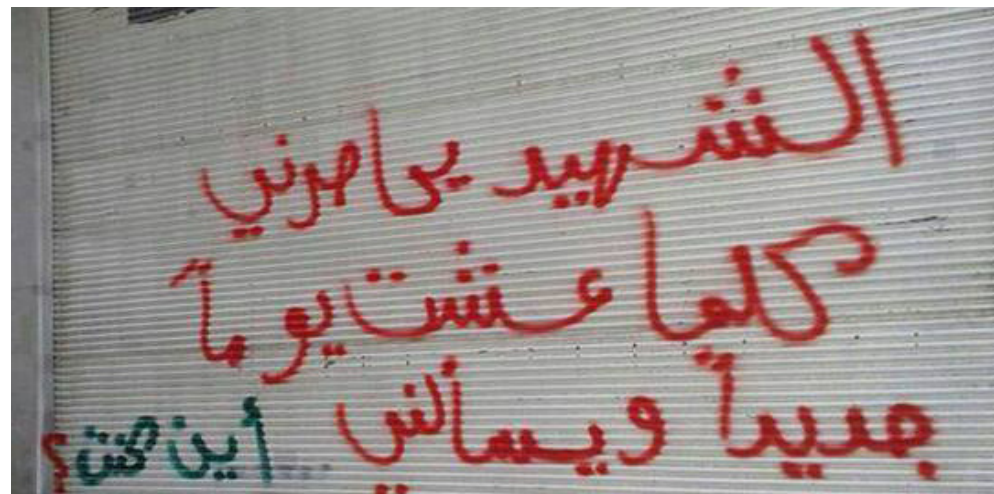 الشهيد يحاصرني
كلما عشت يوماً
جديداً ويسألني أين كنت؟